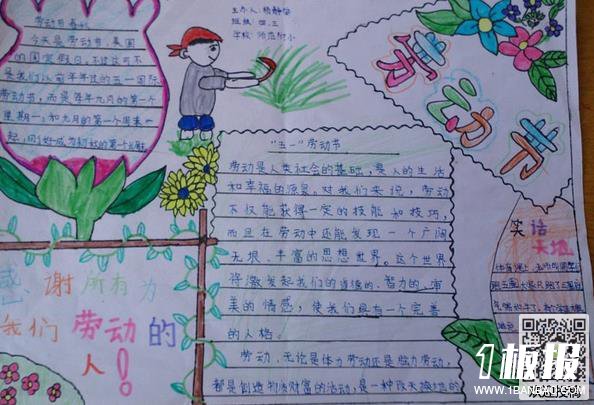 劳动节
主办人：杨静怡
班级：四.三
学校：师范附小
劳动节春秋
今天是劳动节，美国
的国定假日，不过这可不
是我们以前年年过的五一国际
劳动节，而是每年九月的第一个
星期一，和九月的第一个周末一
起，
"五一"劳动节
劳动是人类社会的基础，是人的生活
和幸福的源泉。对我们来说，劳动
不仅能获得一定的技能和技巧，
而且在劳动中还能发现一个广阔
无垠、丰富的思想世界。这个世界
将激发起我们的道德的、智力的、审
美的情感，使我们具有一个完善
的人格。
劳动，无论是体力劳动还是脑力劳动，
都是创造物质财富的活动，是一种改天换地的
笑话
天地
感谢所有为
我们劳动的
人！
1板报
WWW.1BANBAO.COM